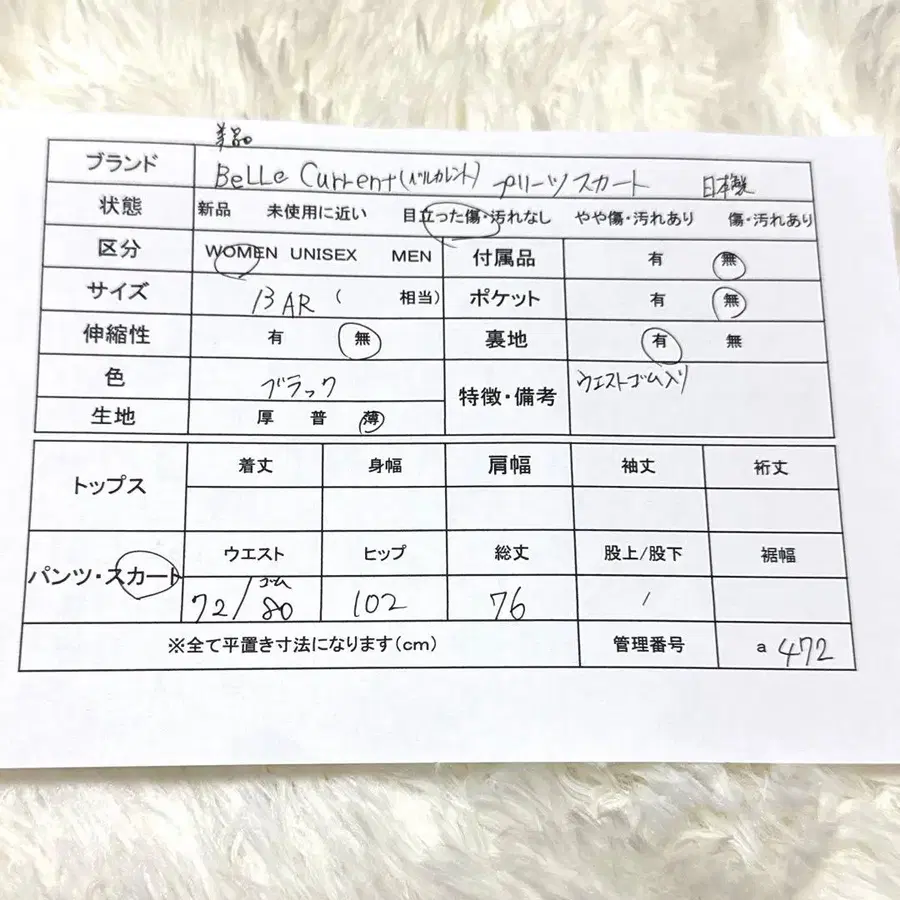 美品
ブランド Belle Current(ベルカレント) プリーツスカート 日本製
状態 新品 未使用に近い 目立った傷・汚れなし やや傷・汚れあり 傷・汚れあり
区分 WOMEN UNISEX MEN 付属品 有 無
サイズ 13AR ( 相当) ポケット 有 無
伸縮性 有 無 裏地 有 無
色 ブラック 特徴・備考 ウエストゴム入り
生地 厚 普 薄
トップス 着丈 身幅 肩幅 袖丈 裄丈
パンツ・スカート ウエスト ヒップ 総丈 股上/股下 裾幅
72/ゴム80 102 76 /
※全て平置き寸法になります(cm) 管理番号 a 472